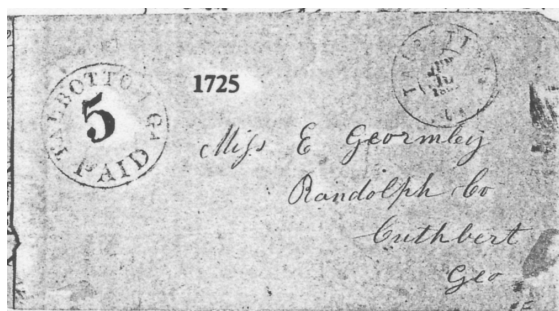 TALBOTTON GA
5
PAID
1725
Miss E Geormley
Randolph Co
Cuthbert
Geo